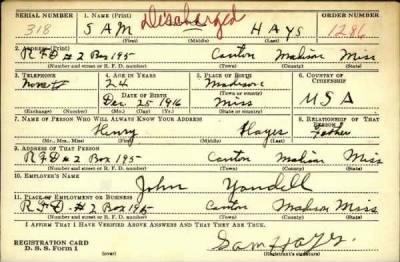 SERIAL NUMBER 1. NAME (Print) Discharged ORDER NUMBER
318 SAM HAYS 1286
(First) (Middle) (Last)
2. ADDRESS (Print)
RFD #2 Box 195 Canton Madison Miss
(Number and street or R. F. D. number) (Town) (County) (State)
3. TELEPHONE 4. AGE IN YEARS 5. PLACE OF BIRTH 6. COUNTRY OF CITIZENSHIP
None 24 Madison
DATE OF BIRTH (Town or county)
Dec. 25 1916 Miss USA
(Exchange) (Number) (Mo.) (Day) (Yr.) (State or country)
7. NAME OF PERSON WHO WILL ALWAYS KNOW YOUR ADDRESS 8. RELATIONSHIP OF THAT PERSON
Henry Hayes Father
(Mr., Mrs., Miss) (First) (Middle) (Last)
9. ADDRESS OF THAT PERSON
RFD #2 Box 195 Canton Madison Miss
(Number and street or R. F. D. number) (Town) (County) (State)
10. EMPLOYER'S NAME
John Yandell
11. PLACE OF EMPLOYMENT OR BUSINESS
RFD - #2 Box 195 Canton Madison Miss.
(Number and street or R. F. D. number) (Town) (County) (State)
I AFFIRM THAT I HAVE VERIFIED ABOVE ANSWERS AND THAT THEY ARE TRUE.
REGISTRATION CARD
D. S. S. Form 1 Sam Hays